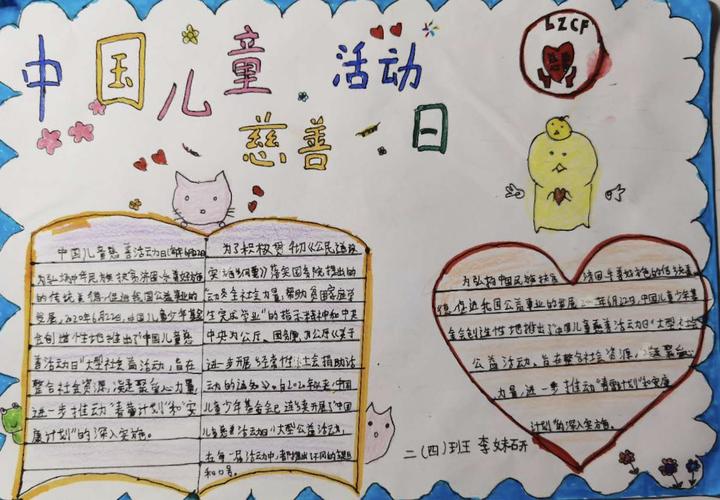 中国儿童慈善活动日
LZCF
中国儿童慈善活动日
为弘扬中华民族扶贫济困
的传统美德促进我国公益事业的
发展,2020年6月22日,中国儿童少年基金
会创造性地推出了"中国儿童慈
善活动日"大型社会益活动,旨在
整合社会资源,凝聚爱心力量
进一步推动"春蕾计划"和"安
康计划"的深入实施。
为了积极贯彻《公民道德
落实国务院提出的
动员全社会力量,帮助贫困家庭学
生完成学业"的指示精神和中共
中央办公厅、国务院办公厅《关于
进一步开展经常性社会捐助活
动的通知》
儿童少年基金会已连续开展了"中国
儿童慈善活动日"大型公益活动,
在每一届活动中,都推出不同的主题
和口号。
为弘扬中国民族扶
济困
德,促进我国公益事业的发展
年6月22日,中国儿童少年基
金会创造性地推出了"中国儿童慈善活动日"大型社会
公益活动,旨在整合社会资源,凝聚爱心
力量,进一步推动"春蕾计划"和"安康
计划"的深入实施。
二(四)班 李妹研